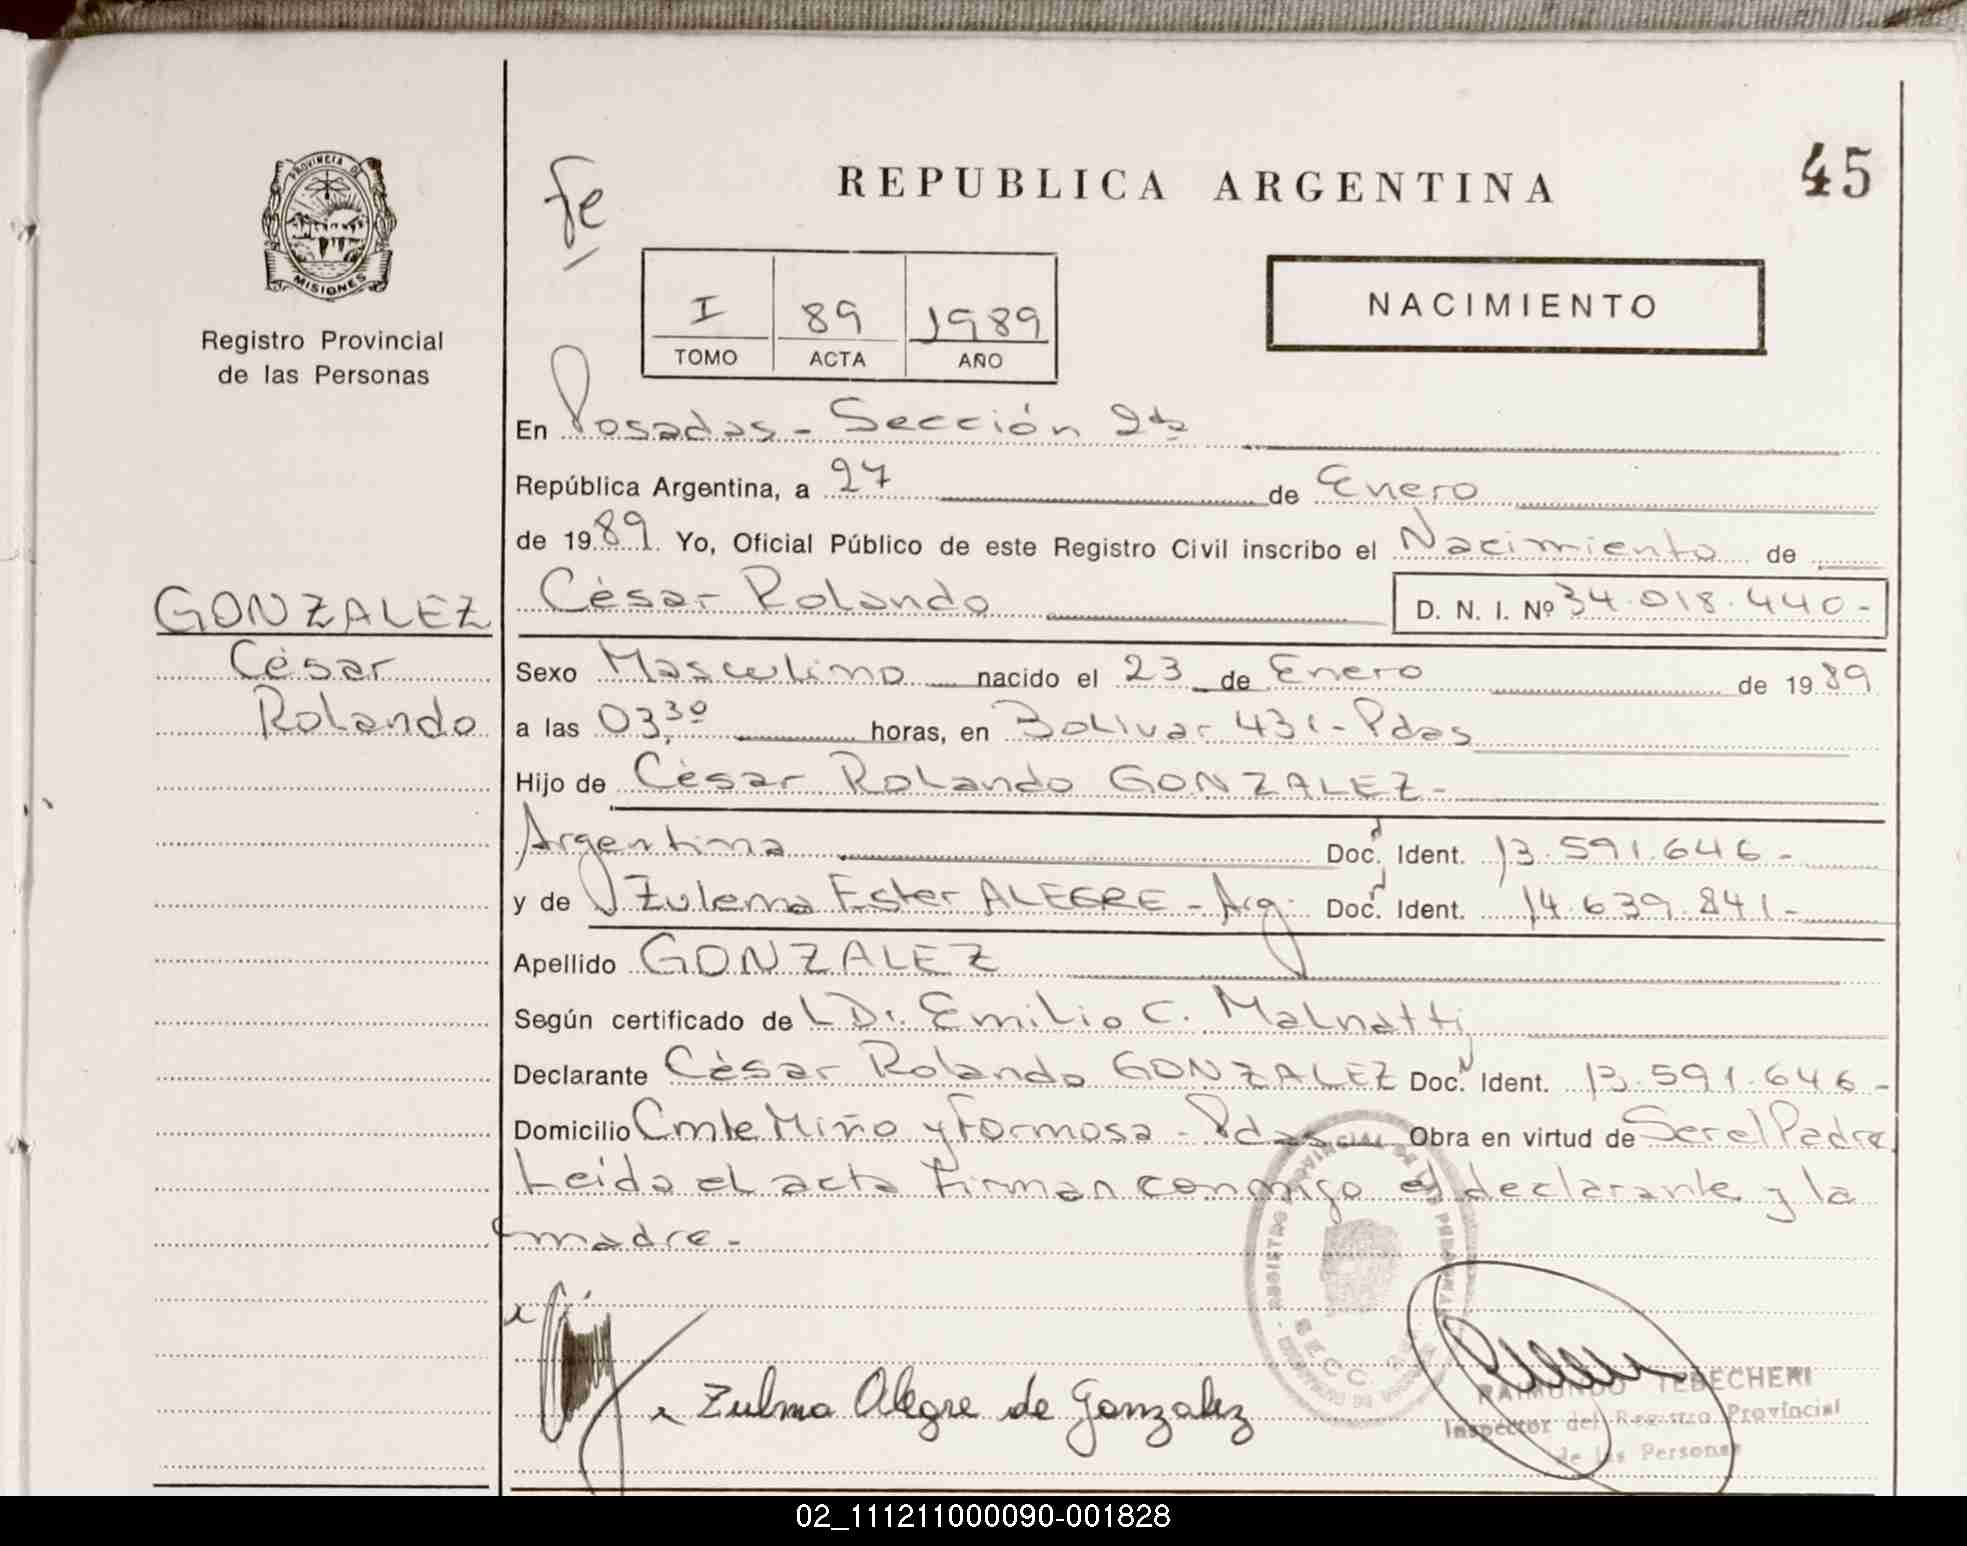 PROVINCIA DE
MISIONES
Registro Provincial
de las Personas
GONZALEZ
César
Rolando
fe
REPUBLICA ARGENTINA
45
I 89 1989
TOMO ACTA AÑO
NACIMIENTO
En Posadas - Sección 2da
República Argentina, a 27 de Enero
de 1989. Yo, Oficial Público de este Registro Civil inscribo el Nacimiento de
César Rolando D. N. I. Nº 34.018.440-
Sexo Masculino nacido el 23 de Enero de 1989
a las 03,30 horas, en Bolivar 431 - Pdas
Hijo de César Rolando GONZALEZ -
Argentina Doc. Ident. 13.591.646 -
y de Zulema Ester ALEGRE - Arg. Doc. Ident. 14.639.841 -
Apellido GONZALEZ
Según certificado del Dr. Emilio C. Malnatti
Declarante César Rolando GONZALEZ Doc. Ident. 13.591.646 -
Domicilio Cmte Miño y Formosa - Pdas Obra en virtud de Ser el Padre.
Leida el acta firman conmigo el declarante y la
madre -
Zulma Alegre de Gonzalez
RAIMUNDO TEBECHERI
Inspector del Registro Provincial
de las Personas
02_111211000090-001828